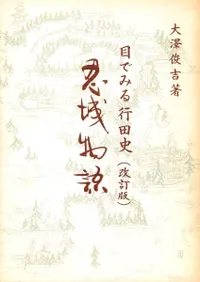 大澤俊吉著
目でみる行田史(改訂版)
忍城物語